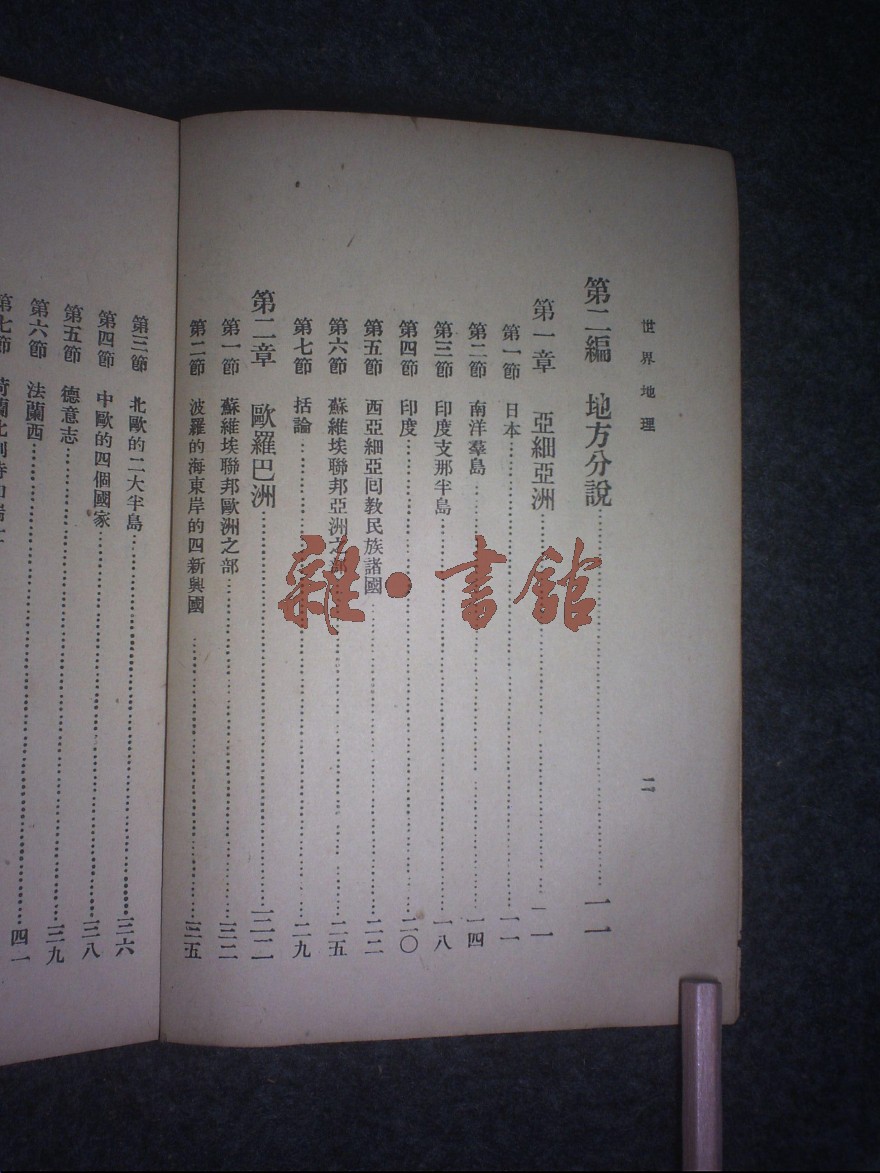 世界地理
二
第二編 地方分說……一一
第一章 亞細亞洲……一一
第一節 日本……一一
第二節 南洋羣島……一四
第三節 印度支那半島……一八
第四節 印度……二〇
第五節 西亞細亞回教民族諸國……二二
第六節 蘇維埃聯邦亞洲之部……二五
第七節 括論……二九
第二章 歐羅巴洲……三二
第一節 蘇維埃聯邦歐洲之部……三二
第二節 波羅的海東岸的四新興國……三五
第三節 北歐的二大半島……三六
第四節 中歐的四個國家……三八
第五節 德意志……三九
第六節 法蘭西……四一
第七節
雜·書館